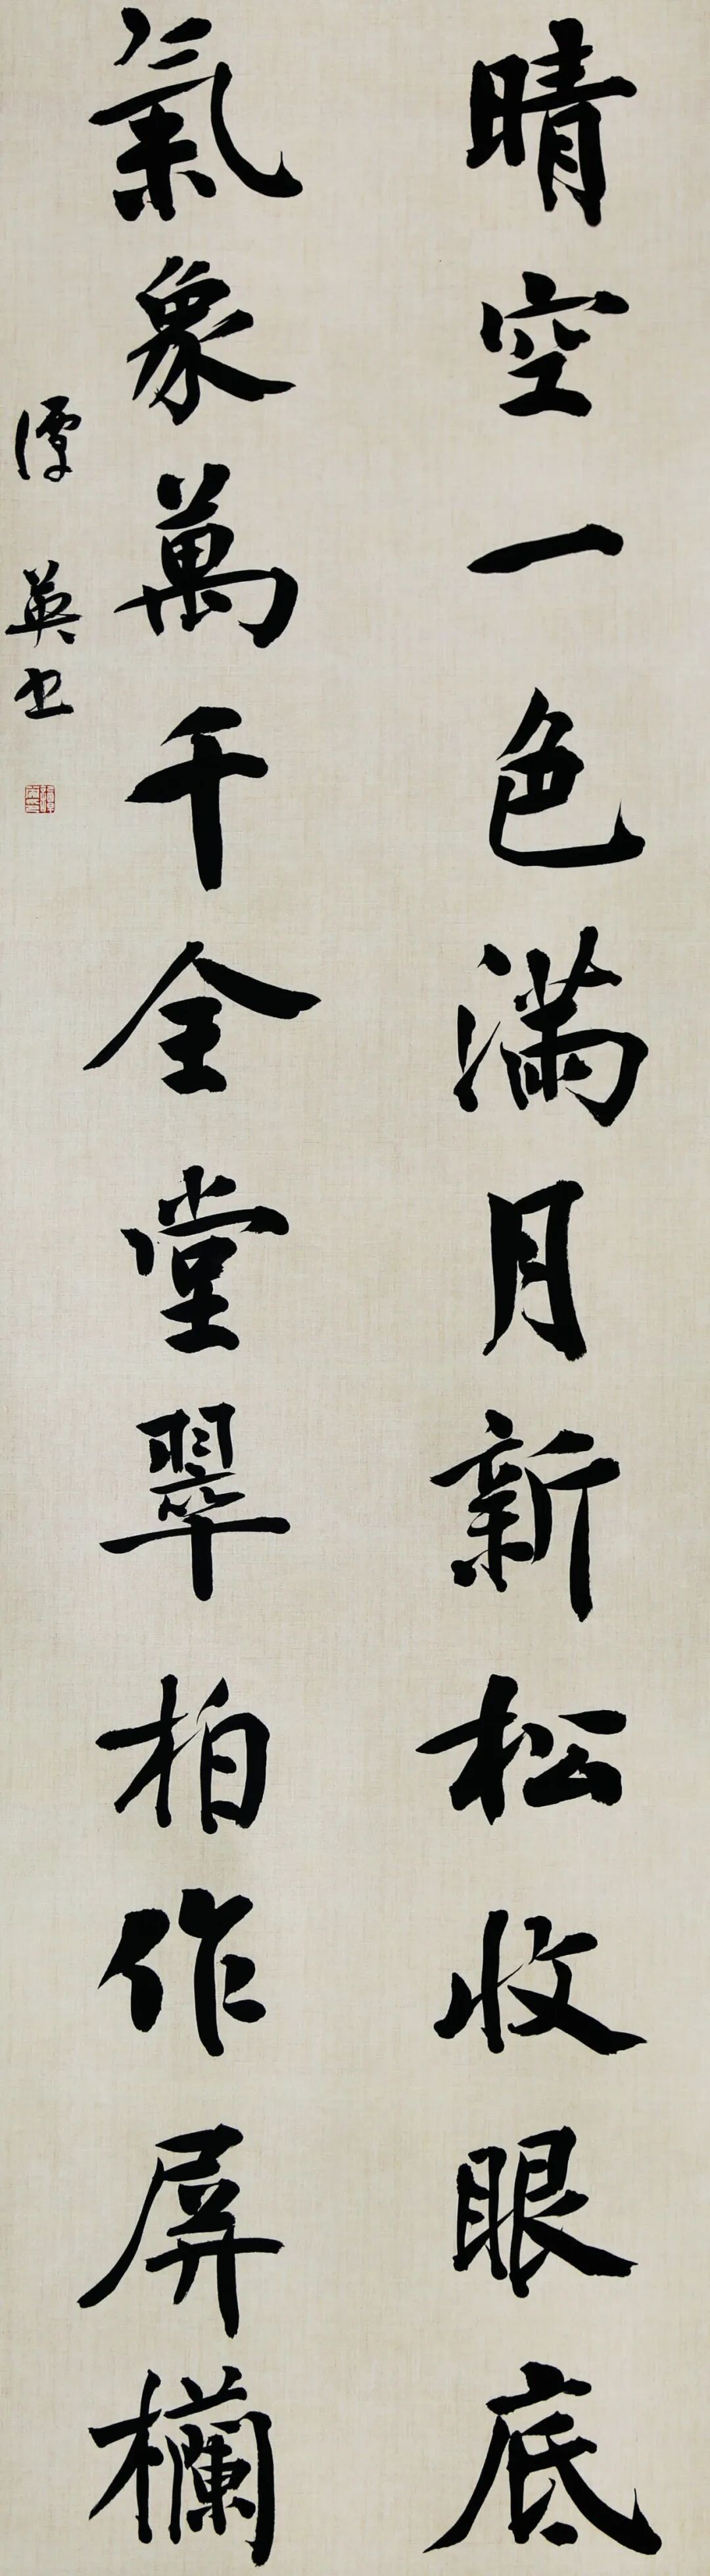 晴空一色满月新松收眼底
氣象萬千全堂翠柏作屏欄
潭英书